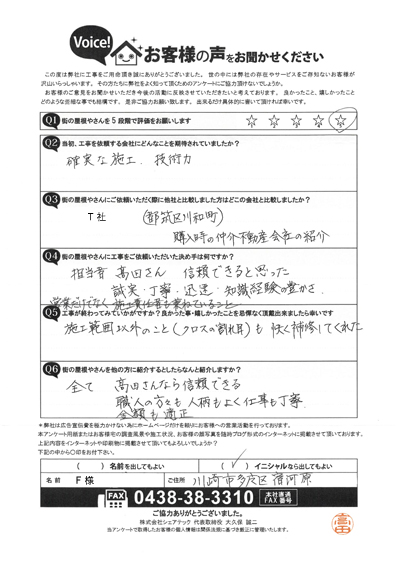 Voice!
お客様の声をお聞かせください
この度は弊社に工事をご用命頂き誠にありがとうございました。 世の中には弊社の存在やサービスをご存知ないお客様が
沢山いらっしゃいます。 その方たちに弊社をよく知って頂くためのアンケートにご協力頂けないでしょうか。
お客様のご意見をお聞かせいただき今後の活動に反映させていただきたいと考えております。 良かったこと、嬉しかったこと
どのような些細な事でも結構です。 是非ご協力お願い致します。 出来るだけ具体的に書いて頂ければ幸いです。
Q1 街の屋根やさんを5段階で評価をお願いします ☆ ☆ ☆ ☆ ☆
Q2 当初、工事を依頼する会社にどんなことを期待されていましたか?
確実な施工、技術力
Q3 街の屋根やさんにご依頼いただく際に他社と比較しました方はどこの会社と比較しましたか?
T社 (都筑区川和町)
購入時の仲介不動産会社の紹介
Q4 街の屋根やさんに工事をご依頼いただいた決め手は何ですか?
担当者 高田さん 信頼できると思った
誠実・丁寧・迅速・知識経験の豊かさ、
営業だけでなく施工責任者も兼ねていること
Q5 工事が終わってみていかがですか?良かった事・嬉しかったことを忌憚なく頂戴出来ましたら幸いです
施工範囲以外のこと(クロスの割れ等)も快く補修してくれた
Q6 街の屋根やさんを他の方に紹介するとしたらなんと紹介しますか?
全て 高田さんなら信頼できる
職人の方々も人柄もよく仕事も丁寧、
金額も適正
*弊社は広告宣伝費を極力かけない為にホームページだけを頼りにお客様への営業活動を行っております。
本アンケート用紙またはお客様宅の調査風景や施工状況、お客様の顔写真を随時ブログ形式のインターネットに掲載させて頂いております。
上記内容をインターネットや印刷物に掲載させて頂いてもよろしいでしょうか?
下記の中から○印をお付け下さい。
( ) 名前を出してもよい (✓) イニシャルなら出してもよい
名前 F様 ご住所 川崎市多摩区菅河原
FAX 0438-38-3310 本社直通 FAX番号
ご協力ありがとうございました。
株式会社シェアテック 代表取締役 大久保 誠二
当アンケートで取得したお客様の個人情報は関係法規に基づき厳正に管理いたします。
高田